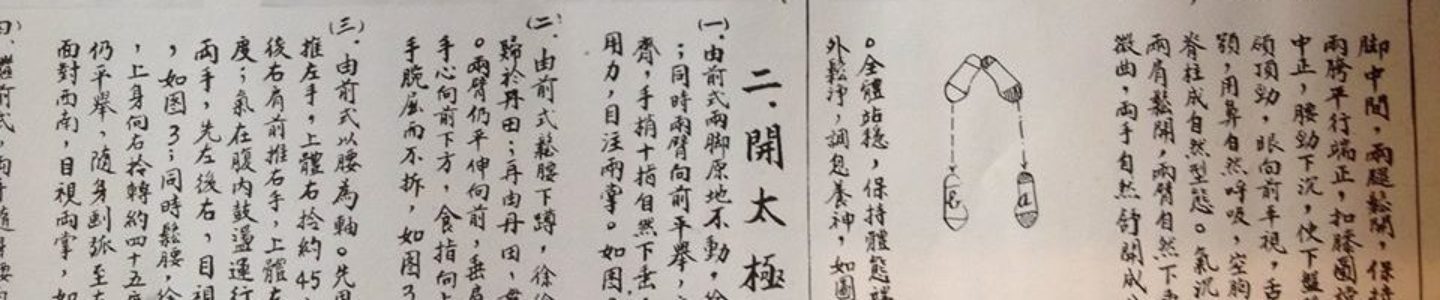 脚中間，兩腿鬆開，保持
兩胯平行端正，扣膝圓襠
中正，腰勁下沉，使下盤
頭頂勁，眼向前平視，舌
顎，用鼻自然呼吸，空胸
脊柱成自然型態。氣沉
兩肩鬆開，兩臂自然下垂
微曲，兩手自然舒開成
a
b
。全體站穩，保持體態
外鬆淨，調息養神，如圖
二．開太極
(一)．由前式兩脚原地不動，徐
；同時兩臂向前平舉，
齊，手指十指自然下垂
用力，目注兩掌。如圖
(二)．由前式鬆腰下蹲，徐徐
歸於丹田；再由丹田、
。兩臂仍平伸向前，垂肩
手心向前下方，食指向上
手腕屈而不拆，如圖3
(三)．由前式以腰為軸。先
推左手，上體右拎約45
後右肩前推右手，上體左
度；氣在腹內鼓盪運行
兩手，先左後右，目視
，如图3；同時鬆腰，徐
，上身向右拎轉約四十五度
仍平舉，隨身劃弧至
面對西南，目視両掌，如
四．繼前式，兩手隨身腰